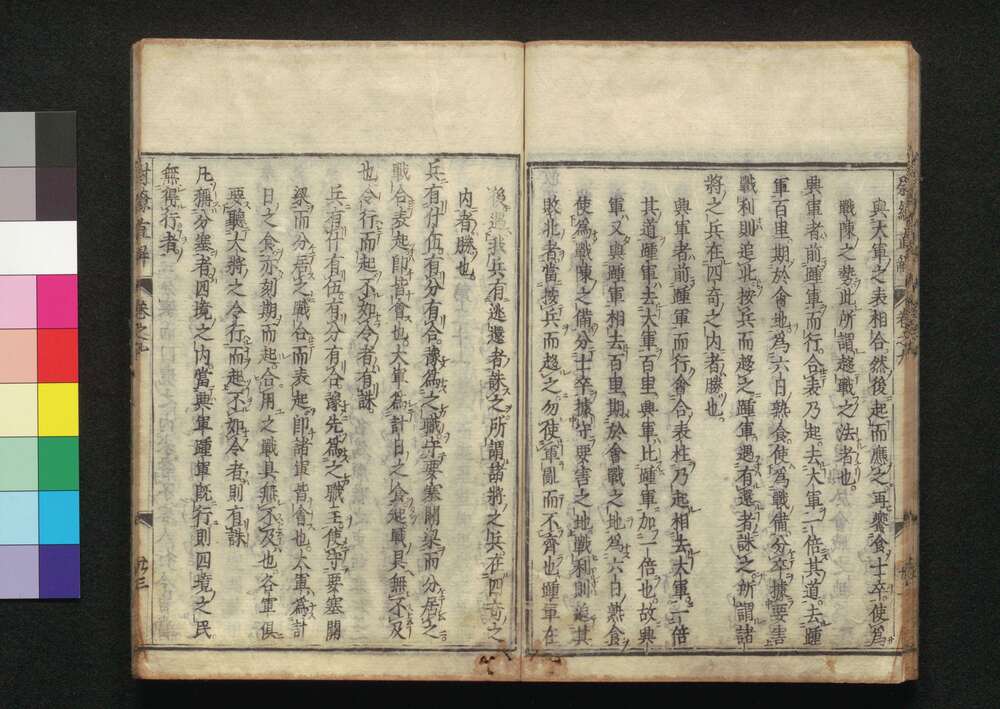 與大軍之表相合然後起而應之再饗食士卒使爲
戰陳之勢此所謂趨戰之法者也
興軍者前踵軍而行合表乃起去大軍一倍其道去踵
軍百里期於會地爲六日熟食使爲戰備分卒據要害
戰利則追北按兵而趨之踵軍遇有還者誅之所謂諸
將之兵在四奇之内者勝也
興軍者前踵軍而行會合表柱乃起相去大軍一倍
其道踵軍去大軍百里興軍比踵軍加一倍也故興
軍又與踵軍相去百里期於會戰之地爲六日熟食
使爲戰陳之備分士卒據守要害之地戰利則追其
敗北者當按兵而趨之勿使軍亂而不齊也踵軍在
後遇我兵有逃還者誅之所謂諸將之兵在四奇之
内者勝也
兵有什伍有分有合豫爲之職守要塞關梁而分居之
戰合表起卽皆會也大軍爲計日之食起戰具無不及
也令行而起不如令者有誅
兵有什有伍有分有合豫先爲之職主使守要塞關
梁而分居之戰合而表起卽諸軍皆會也大軍爲計
日之食亦刻期而起合用之戰具無不及也各軍俱
要聽大將之令行而起不如令者則有誅
凡稱分塞者四境之内當興軍踵軍既行則四境之民
無得行者
尉繚直解 卷之